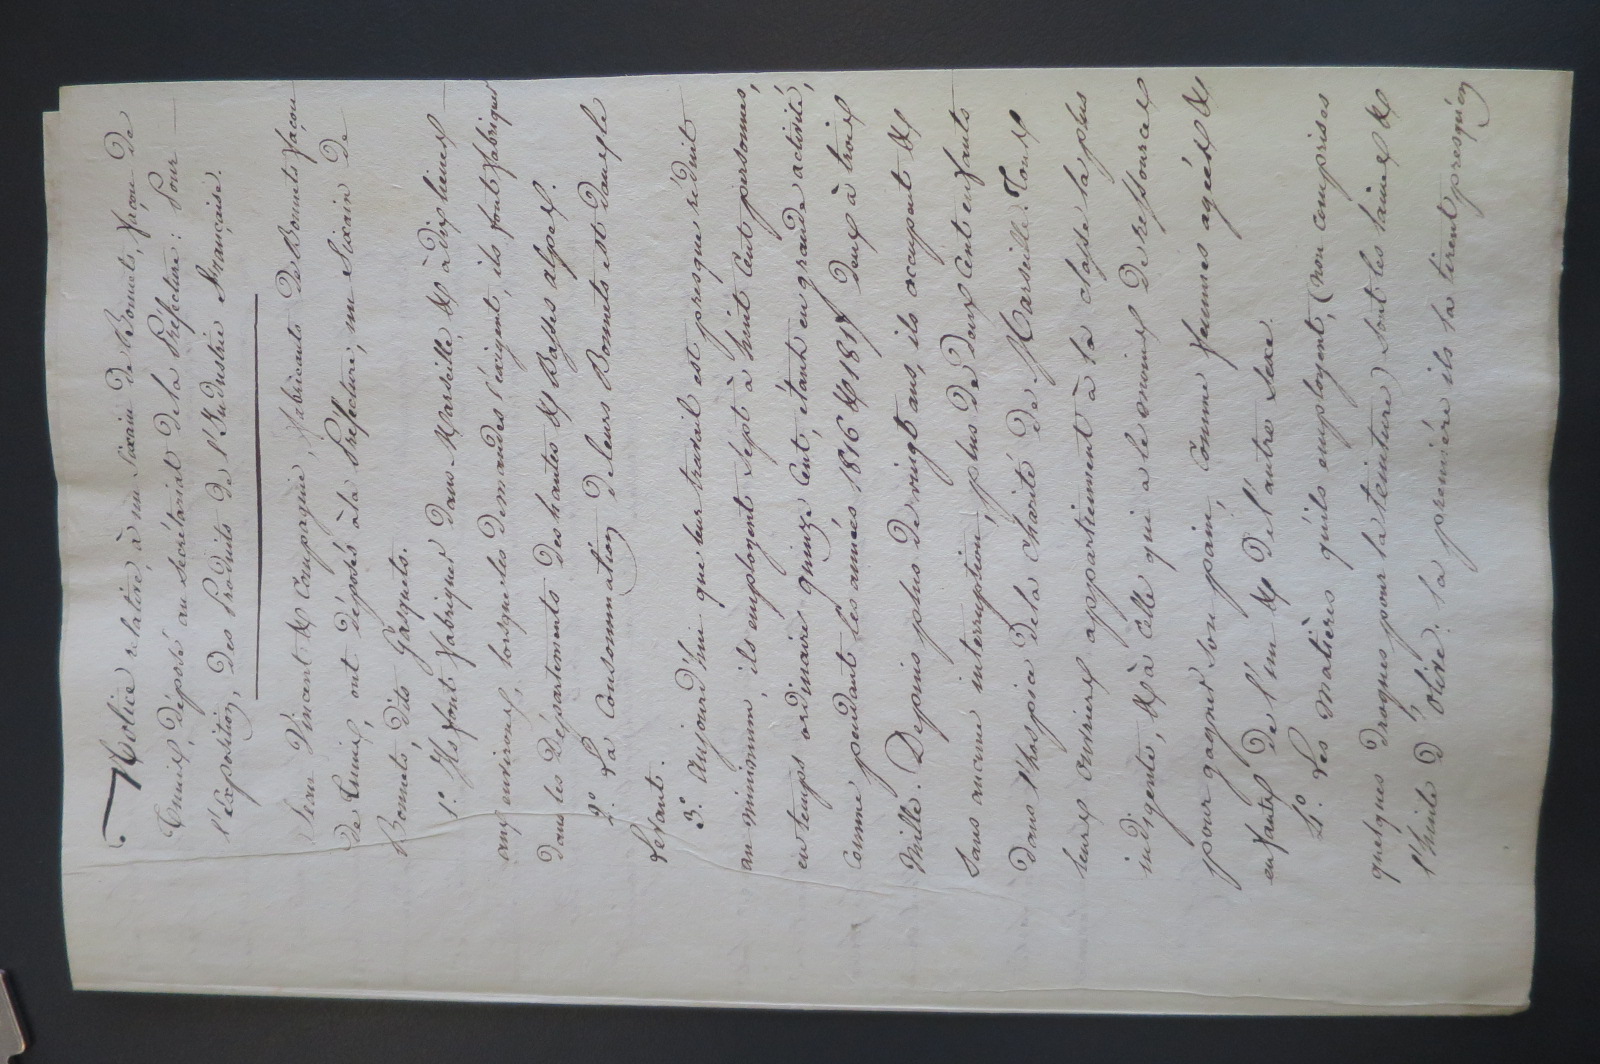 Notice relative, à un Sixain de Bonnets, façon de
Tunis, déposé au Secrétariat de la Préfecture: Pour
l'Exposition, des Produits de l'Industrie Française.
Jean Vincent & Compagnie, fabricants de Bonnets façon
de Tunis, ont déposés à la Préfecture, un Sixain de
Bonnets, dits Gasquets.
1.º Ils font fabriquer dans Marseille, & à dix lieues
aux environs, lorsque les demandes l'éxigent, ils font fabriquer
dans les Départements des hautes & Basses alpes.
2.º La Consommation de leurs Bonnets est dans le
Levant.
3.º Aujourd'hui que leur travail est presque réduit
au minimum, ils employent Sept à huit Cent personnes,
en temps ordinaire quinze Cent, étant en grande activité,
comme pendant les années 1816 & 1817 deux à trois
Mille. Depuis plus de vingt ans, ils occupent &
Sans aucune interruption, plus de deux Cent enfants
dans l'hospice de la charité de Marseille. Tous
leurs ouvriers appartiennent à la classe la plus
indigente, & à Celle qui a le moins de ressources
pour gagner son pain, Comme femmes agées &
enfants de l'un & de l'autre Sexe.
4.º Les matières qu'ils employent, (non comprises
quelques drogues pour la teinture) Sont les laines &
l'huile d'olive: la premiére ils la tirent presqu'en